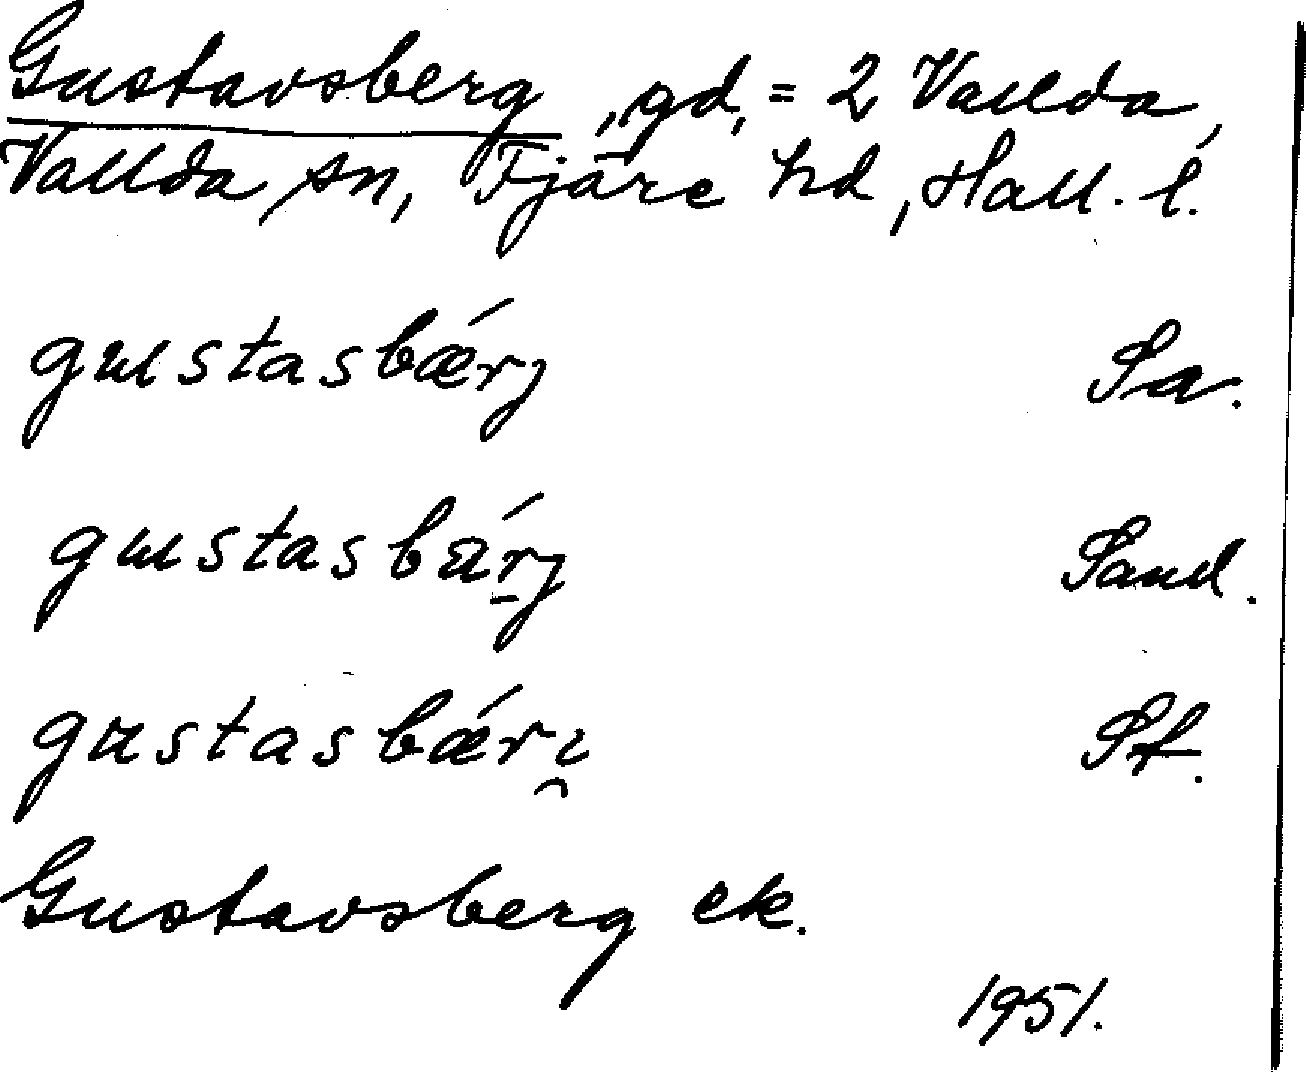 Gustavsberg, gd, = 2 Vallda,
Vallda sn, Fjäre hd, Hall. l.
gustasbǽrj Sa.
gustasbárj Sand.
gustasbǽri̯ St.
Gustavsberg ek.
1951.